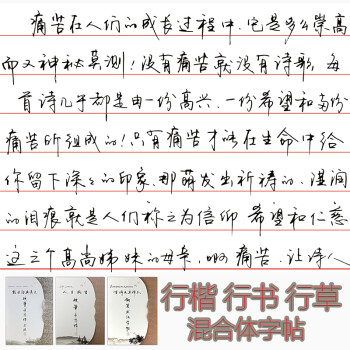 痛苦在人们的成长过程中，它是多么崇高
而又神秘莫测！没有痛苦就没有诗歌，每
首诗几乎都是由一份高兴、一份希望和两份
痛苦所组成的！只有痛苦才能在生命中给
你留下深々的印象，那萌发出祈祷的、湿润
的泪痕就是人们称之为信仰 希望和仁慈
这三个高尚姊妹的母亲，啊痛苦，让诗人
行楷 行书 行草
混合体字帖